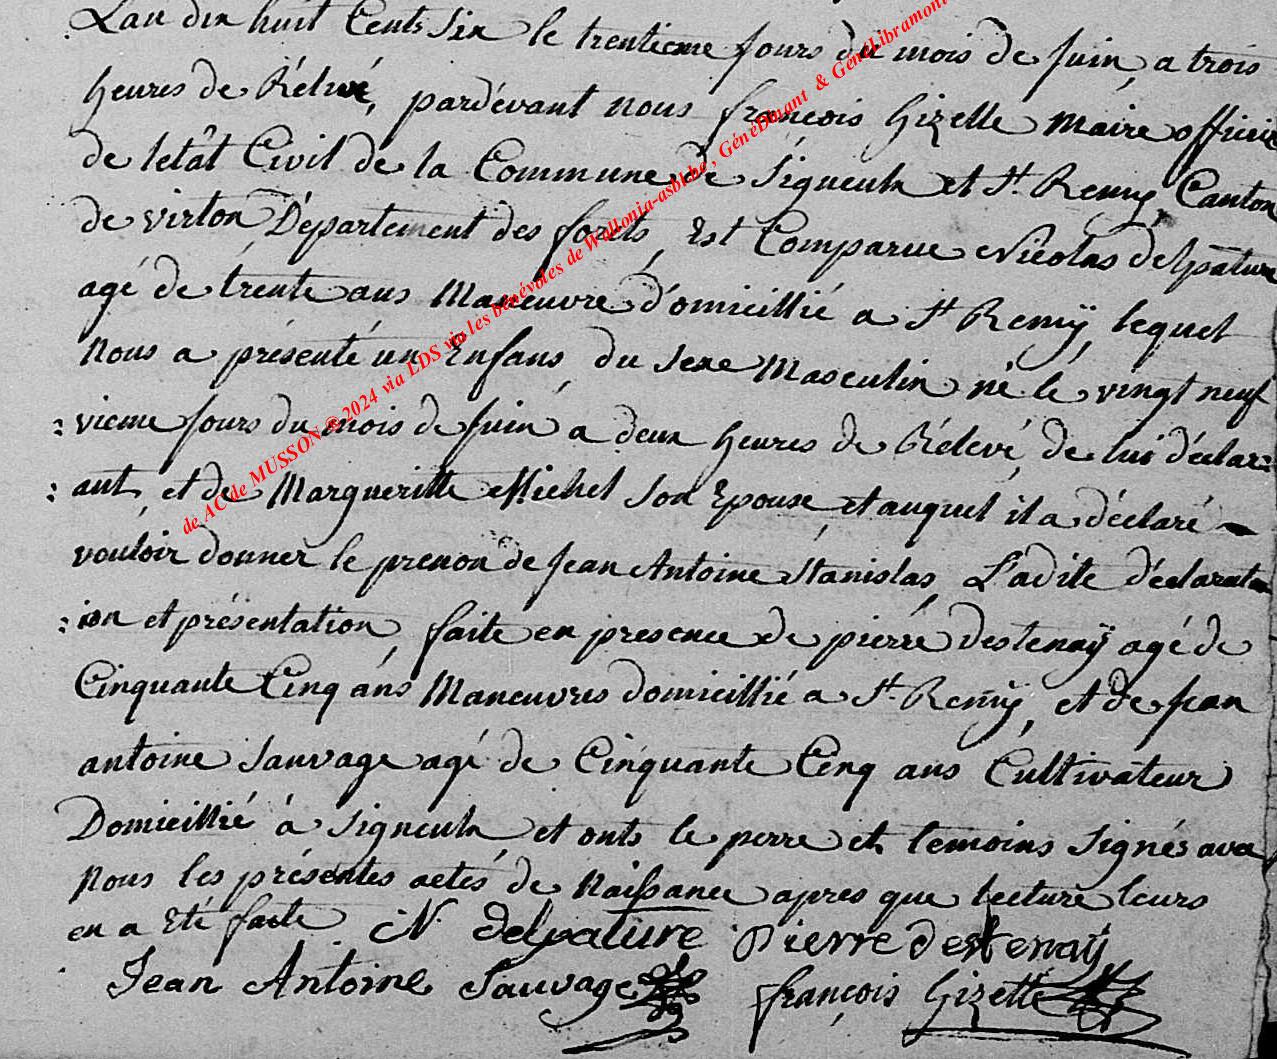 L'an dix huit Cents Six le trentieme Jours du mois de Juin, a trois
heures de Rélevé, pardévant nous françois Gizette Maire officier
de letât Civil de la Commune de Signeulx et St Remÿ Canton
de virton Département des forêts, Est Comparue Nicolas délpature
agé de trente ans Maneuvre domicillié a St Remÿ, lequel
Nous a présenté un Enfans du sexe Masculin né le vingt neuf
:vieme Jours du mois de Juin a deux heures de Rélevé, de lui déclar:
:ant, et de Margueritte Michel son Epouse et auquel il a déclaré
vouloir donner le prenon de Jean Antoine Stanislas, Ladite déclarat
:ion et présentation, faite en presence de pierre destenaÿ agé de
Cinquante Cinq ans Maneuvres domicillié a St Remÿ, et de Jean
antoine Sauvage agé de Cinquante Cinq ans Cultivateur
Domicillié à Signeulx, et onts le perre et temoins signés avec
Nous les présentes actés de Naissance apres que lecture leurs
en a Eté faite N. delpature Pierre destenaÿ
Jean Antoine Sauvage françois Gizette
de AC de MUSSON © 2024 via LDS via les bénévoles de Wallonia-asbl.be , GénéDinant & GénéLibramont